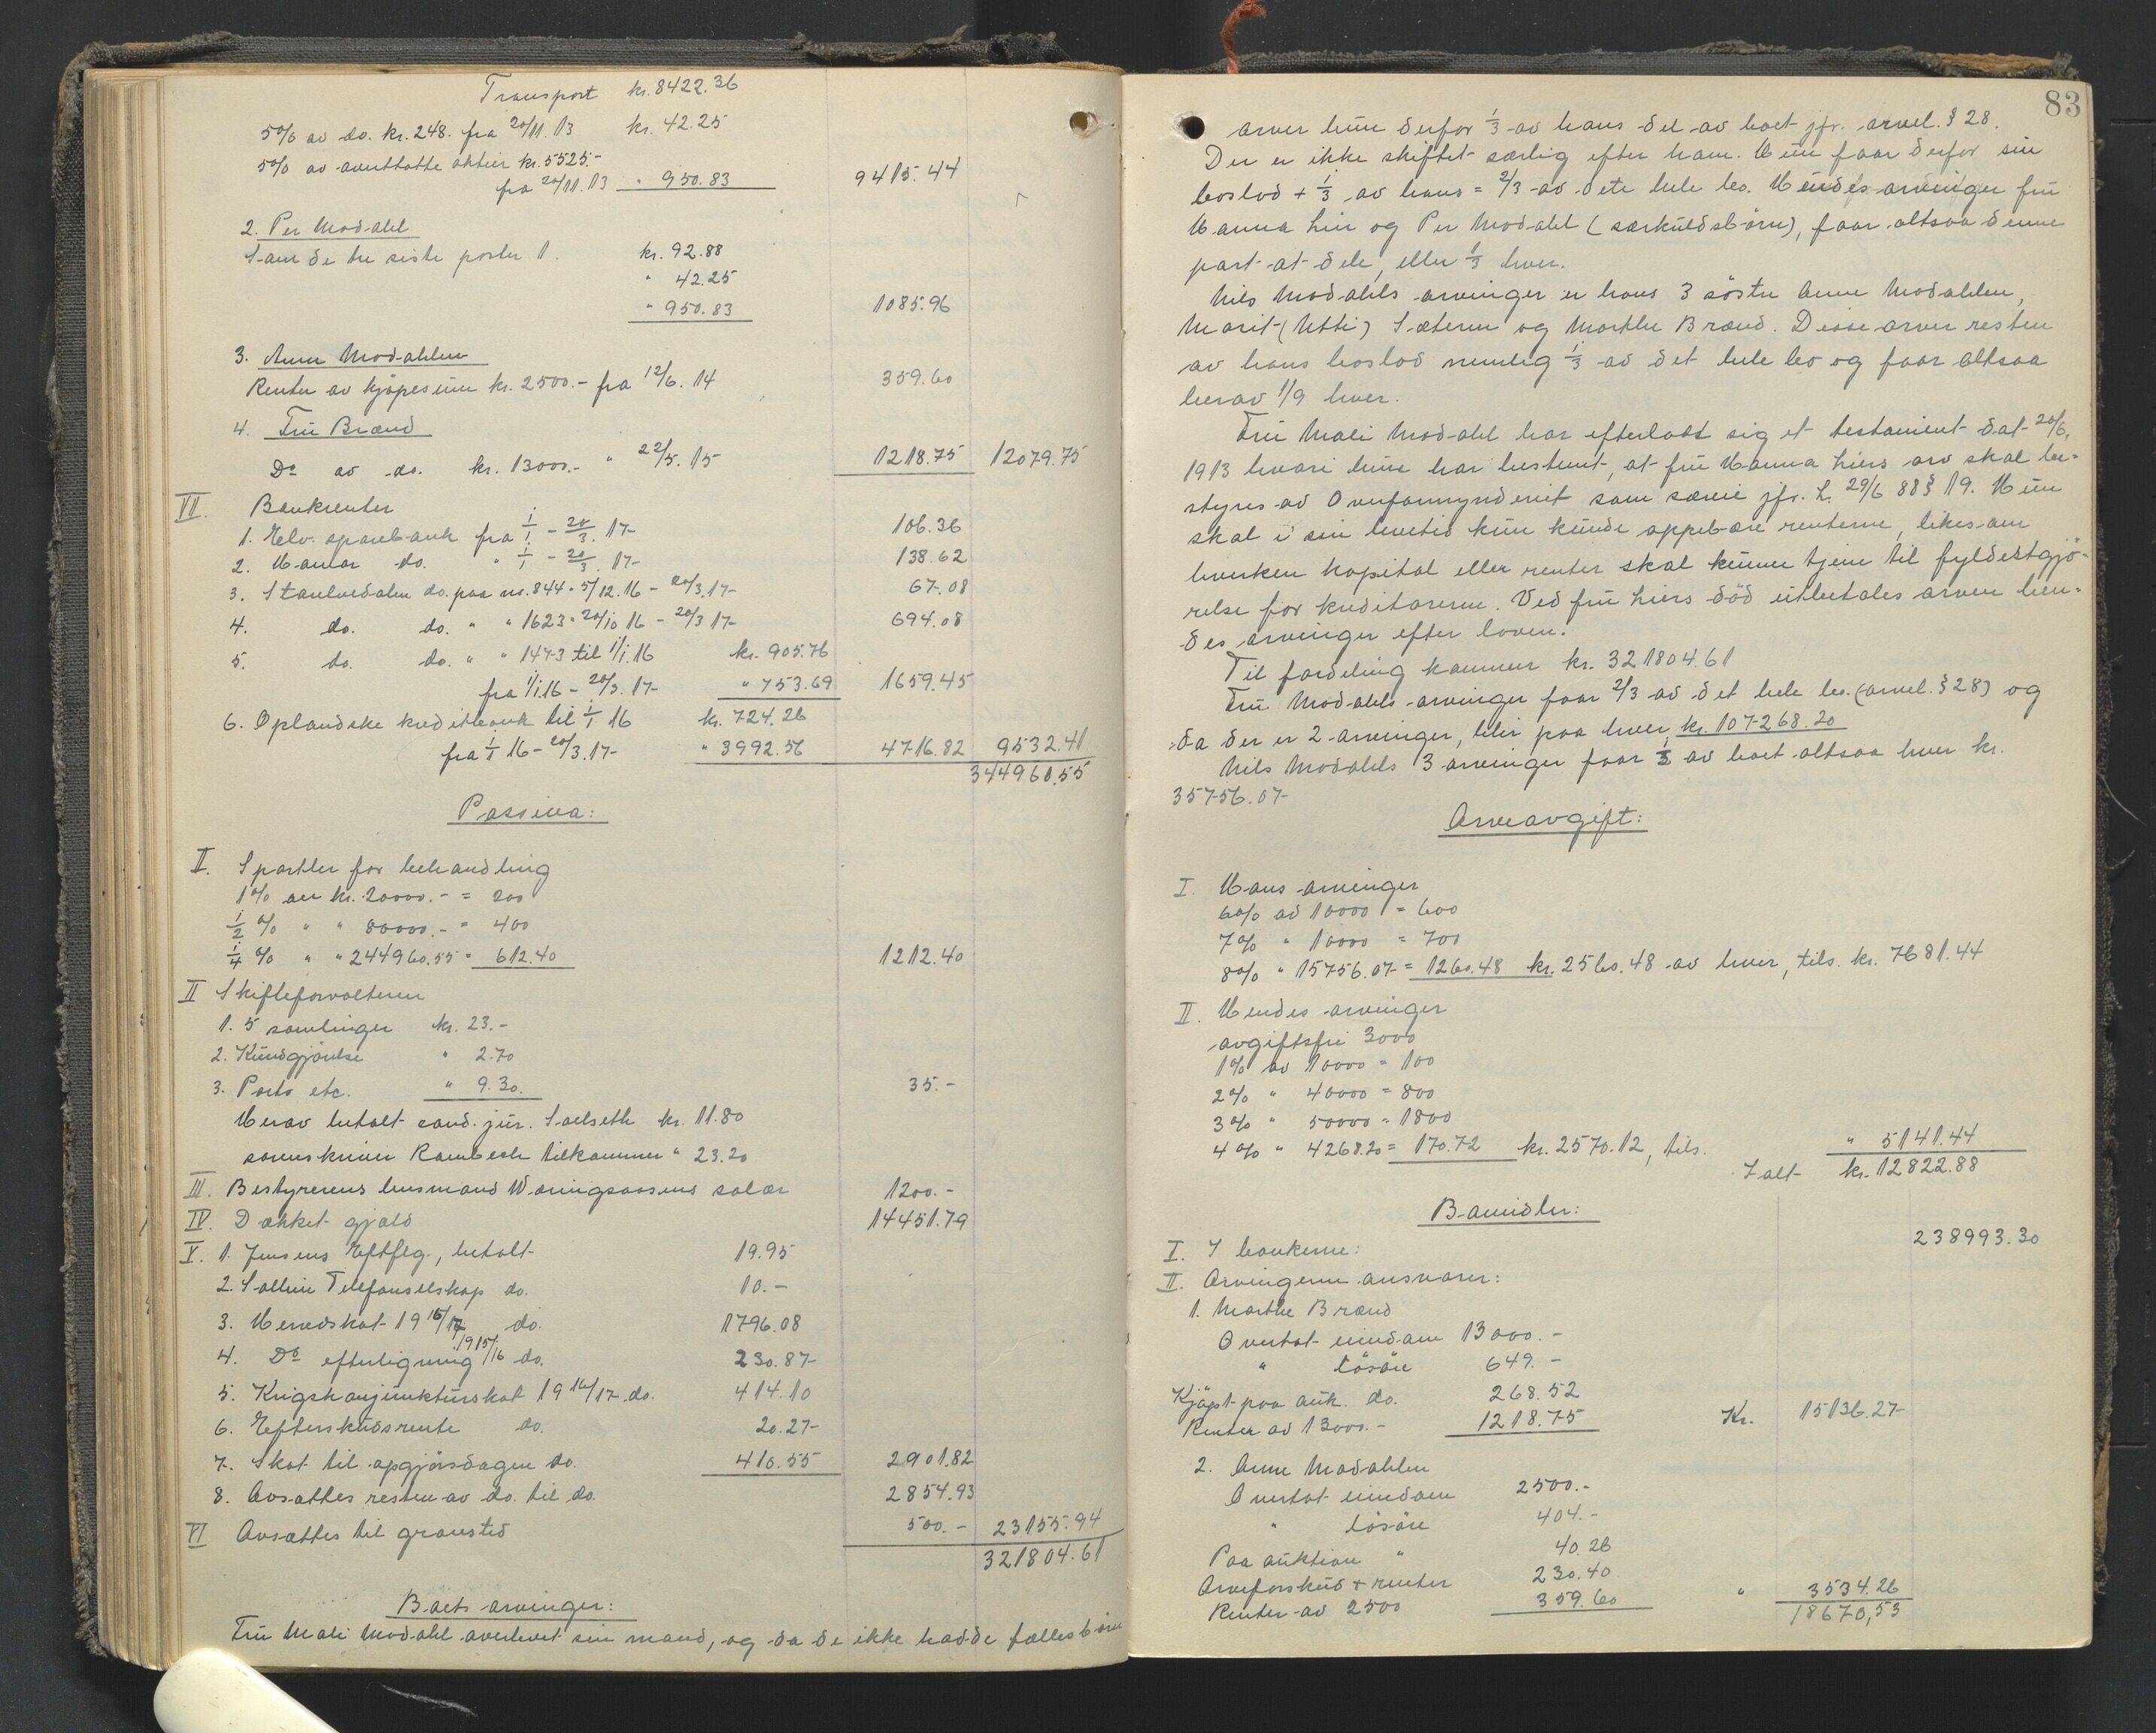 Transport kr. 8422.36
5% av do. kr. 248. fra 20/11.13 kr. 42.25
5% av aventhatte aktier kr. 5525.-
fra 20/11.13 " 950.83 9415.44
2. Per Modahl
Samde tre siste poster 1. kr. 92.88
" 42.25
" 950.83 1085.96
3. Anne Modahlen
Renter av kjøpesum kr. 2500.- fra 12/6.14 359.60
4. Fru Brænd
Do av do. kr. 13000.- " 22/5.15 1218.75 12079.75
VII. Bankrenter
1. Elv. sparebank fra 1/1 - 20/3.17- 106.36
2. Hamar do. " 1/1 - 20/3.17- 138.62
3. Stavlvedalen do. paa nr. 844 - 5/12.16 - 20/3.17- 67.08
4. do. do. " " 1623 - 20/10 16 - 20/3 17- 694.08
5. do. do. " " 1473 til 1/1.16 kr. 905.76
fra 1/1 16 - 20/3.17- " 753.69 1659.45
6. Oplandske kreditbank til 1/1 16 kr. 724.26
fra 1/1 16 - 20/3.17- " 3992.56 4716.82 9532.41
344960.55
Passiva:
II. Sportler for behandling
1% av kr. 20000.- = 200
1/2 % " " 80000.- = 400
1/4 % " " 244960.55 = 612.40 1212.40
II Skifteforvalteren
1. 5 samlinger kr. 23.-
2. Kundgjørelse " 2.70
3. Porto etc. " 9.30. 35.-
Herav betalt cand. jur. Saelseth kr. 11.80
sorenskriver Rambech tilkommer " 23.20
III. Bestyrerens lensmand Wæringsaasens salær 1200.-
IV. Dækket gjæld 14451.79
V. 1. Jensens Eftflg., betalt 19.95
2. Sollien Telefonselskap do. 10.-
3. Herredskat 19 16/17 do. 1796.08
4. Do efterligning 1915/16 do. 230.87-
5. Krigskonjunkturskat 19 16/17 do. 414.10
6. Efterskudsrente do. 20.27-
7. Skat til opgjørsdagen do. 410.55 2901.82
8. Avsættes resten av do. til do. 2854.93
VI Avsættes til gravsted 500.- 23155.94
321804.61
Boets arvinger:
Fru Mali Modahl overlevet sin mand, og da de ikke hadde fællesbørn
83
arver hun derfor 1/3 av hans del av boet jfr. arvel. § 28.
Der er ikke skiftet særlig efter ham. Hun faar derfor sin
boslod + 1/3 av hans = 2/3 av dete hele bo. Hendes arvinger fru
Hanna Lier og Per Modahl (særkuldsbørn), faar altsaa denne
part at dele, eller 1/3 hver.
Nils Modahls arvinger er hans 3 søstre Anne Modahlen,
Marit (Utti) Sæteren og Marthe Brænd. Disse arver resten
av hans boslod nemlig 1/3 av det hele bo og faar altsaa
herav 1/9 hver.
Fru Mali Modahl har efterlatt sig et testament dat. 20/6.
1913 hvori hun har bestemt, at fru Hanna Liers arv skal be-
styres av Overformynderiet som særeie jfr. L. 29/6 88 § 19. Hun
skal i sin levetid kun kunde oppebære renterne, likesom
hverken kapital eller renter skal kunne tjene til fyldestgjø-
relse for kreditorerne. Ved fru Liers død utbetales arven hen-
des arvinger efter loven.
Til fordeling kommer kr. 321804.61
Fru Modahls arvinger faar 2/3 av det hele bo. (arvel. § 28) og
da der er 2 arvinger, blir paa hver kr. 107268.20
Nils Modahls 3 arvinger faar 1/3 av boet altsaa hver kr.
35756.07-
Arveavgift:
I. Hans arvinger
6% av 10000 = 600
7% " 10000 = 700
8% " 15756.07 = 1260.48 kr. 2560.48 av hver, tils. kr. 7681.44
II. Hendes arvinger
avgiftsfri 3000
1% av 10000 = 100
2% " 40000 = 800
3% " 50000 = 1800
4% " 4268.20 = 170.72 kr. 2570.12, tils. " 5141.44
Ialt kr. 12822.88
Bomidler:
I. I bankerne: 238993.30
II. Arvingerne ansvarer:
1. Marthe Brænd
Overtat eiendom 13000.-
" løsøre 649.-
Kjøpt paa auk. do. 268.52
Renter av 13000.- 1218.75 Kr. 15136.27-
2. Anne Modahlen
Overtat eiendom 2500.-
" løsøre 404.-
Paa auktion " 40.26
Arveforskud + renter 230.40
Renter av 2500 359.60 " 3534.26
18670,53